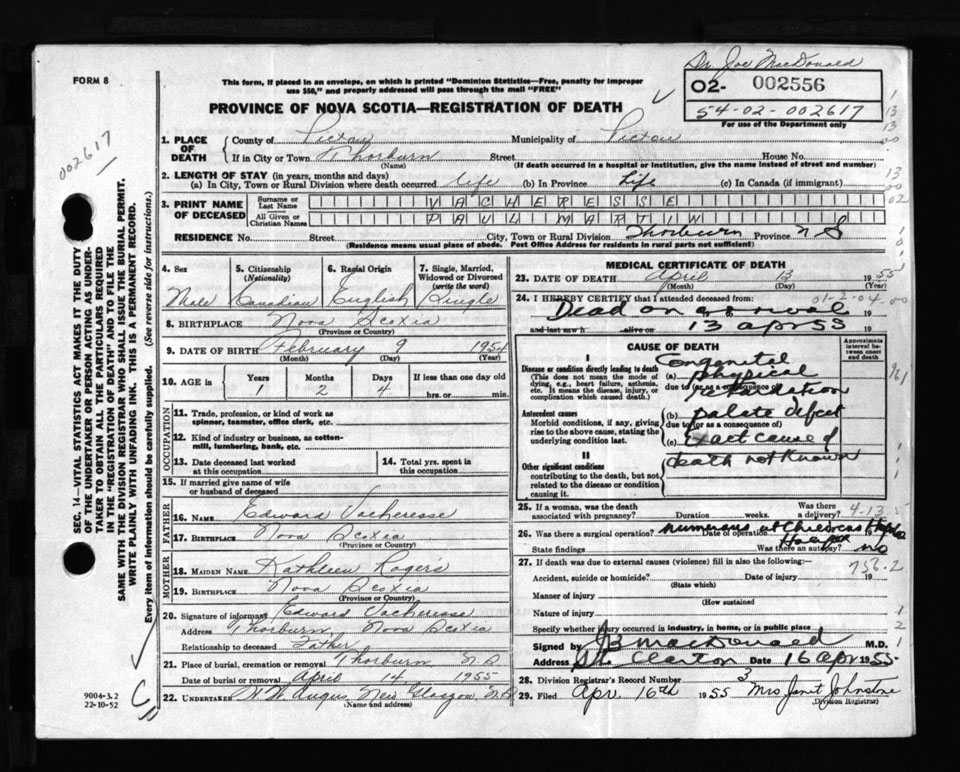 Dr. Joe MacDonald
FORM 8
This form, if placed in an envelope, on which is printed "Dominion Statistics—Free, penalty for improper use $50," and properly addressed will pass through the mail "FREE"
02- 002556
54-02-002617
For use of the Department only
PROVINCE OF NOVA SCOTIA—REGISTRATION OF DEATH
002617
SEC. 14—VITAL STATISTICS ACT MAKES IT THE DUTY
OF THE UNDERTAKER OR PERSON ACTING AS UNDER-
TAKER TO OBTAIN ALL THE PARTICULARS REQUIRED
IN THE "REGISTRATION OF DEATH" AND TO FILE THE
SAME WITH THE DIVISION REGISTRAR WHO SHALL ISSUE THE BURIAL PERMIT.
WRITE PLAINLY WITH UNFADING INK. THIS IS A PERMANENT RECORD.
Every item of information should be carefully supplied. (See reverse side for instructions.)
1. PLACE OF DEATH
County of Pictou Municipality of Pictou
If in City or Town Thorburn Street House No.
(Name) (If death occurred in a hospital or institution, give the name instead of street and number)
2. LENGTH OF STAY (in years, months and days)
(a) In City, Town or Rural Division where death occurred life (b) In Province Life (c) In Canada (if immigrant)
3. PRINT NAME OF DECEASED
Surname or Last Name VACHERESSE
All Given or Christian Names PAUL MARTIN
RESIDENCE No. Street City, Town or Rural Division Thorburn Province N S
(Residence means usual place of abode. Post Office Address for residents in rural parts not sufficient)
4. Sex Male
5. Citizenship (Nationality) Canadian
6. Racial Origin English
7. Single, Married, Widowed or Divorced (write the word) Single
8. BIRTHPLACE Nova Scotia
(Province or Country)
9. DATE OF BIRTH February 9 1954
(Month) (Day) (Year)
10. AGE in Years 1 Months 2 Days 4 If less than one day old hrs. or min.
OCCUPATION
11. Trade, profession, or kind of work as spinner, teamster, office clerk, etc.
12. Kind of industry or business, as cotton-mill, lumbering, bank, etc.
13. Date deceased last worked at this occupation
14. Total yrs. spent in this occupation
15. If married give name of wife or husband of deceased
FATHER
16. NAME Edward Vacheresse
17. BIRTHPLACE Nova Scotia
(Province or Country)
MOTHER
18. MAIDEN NAME Kathleen Rogers
19. BIRTHPLACE Nova Scotia
(Province or Country)
20. Signature of informant Edward Vacheresse
Address Thorburn, Nova Scotia
Relationship to deceased Father
21. Place of burial, cremation or removal Thorburn N.S.
Date of burial or removal April 14 1955
22. UNDERTAKER Angus, New Glasgow, N.S.
(Name and address)
9004-3.2
22-10-52
MEDICAL CERTIFICATE OF DEATH
23. DATE OF DEATH April 13 1955
(Month) (Day) (Year)
24. I HEREBY CERTIFY that I attended deceased from:
01-2-04-00
Dead on arrival 19
and last saw h alive on 13 apr 55 19
CAUSE OF DEATH
Approximate interval between onset and death
I
Disease or condition directly leading to death
(This does not mean the mode of dying, e.g., heart failure, asthenia, etc. It means the disease, injury, or complication which caused death.)
Congenital
(a) physical
due to (or as a consequence of) retardation
Antecedent causes
Morbid conditions, if any, giving rise to the above cause, stating the underlying condition last.
(b) palate defect
due to (or as a consequence of)
(c) Exact cause of
death not known
II
Other significant conditions
contributing to the death, but not related to the disease or condition causing it.
25. If a woman, was the death associated with pregnancy? Duration weeks. Was there a delivery? 4-13
26. Was there a surgical operation? numerous at Childrens Hospital Date of operation 19
Halifax
State findings Was there an autopsy? no
27. If death was due to external causes (violence) fill in also the following: 756.2
Accident, suicide or homicide? Date of injury 19
(State which)
Manner of injury
(How sustained
Nature of injury
Specify whether injury occurred in industry, in home, or in public place
Signed by JB MacDonald M.D.
Address Stellarton Date 16 apr 1955
28. Division Registrar's Record Number 3
29. Filed Apr. 16th 1955 Mrs Janet Johnstone
(Division Registrar)